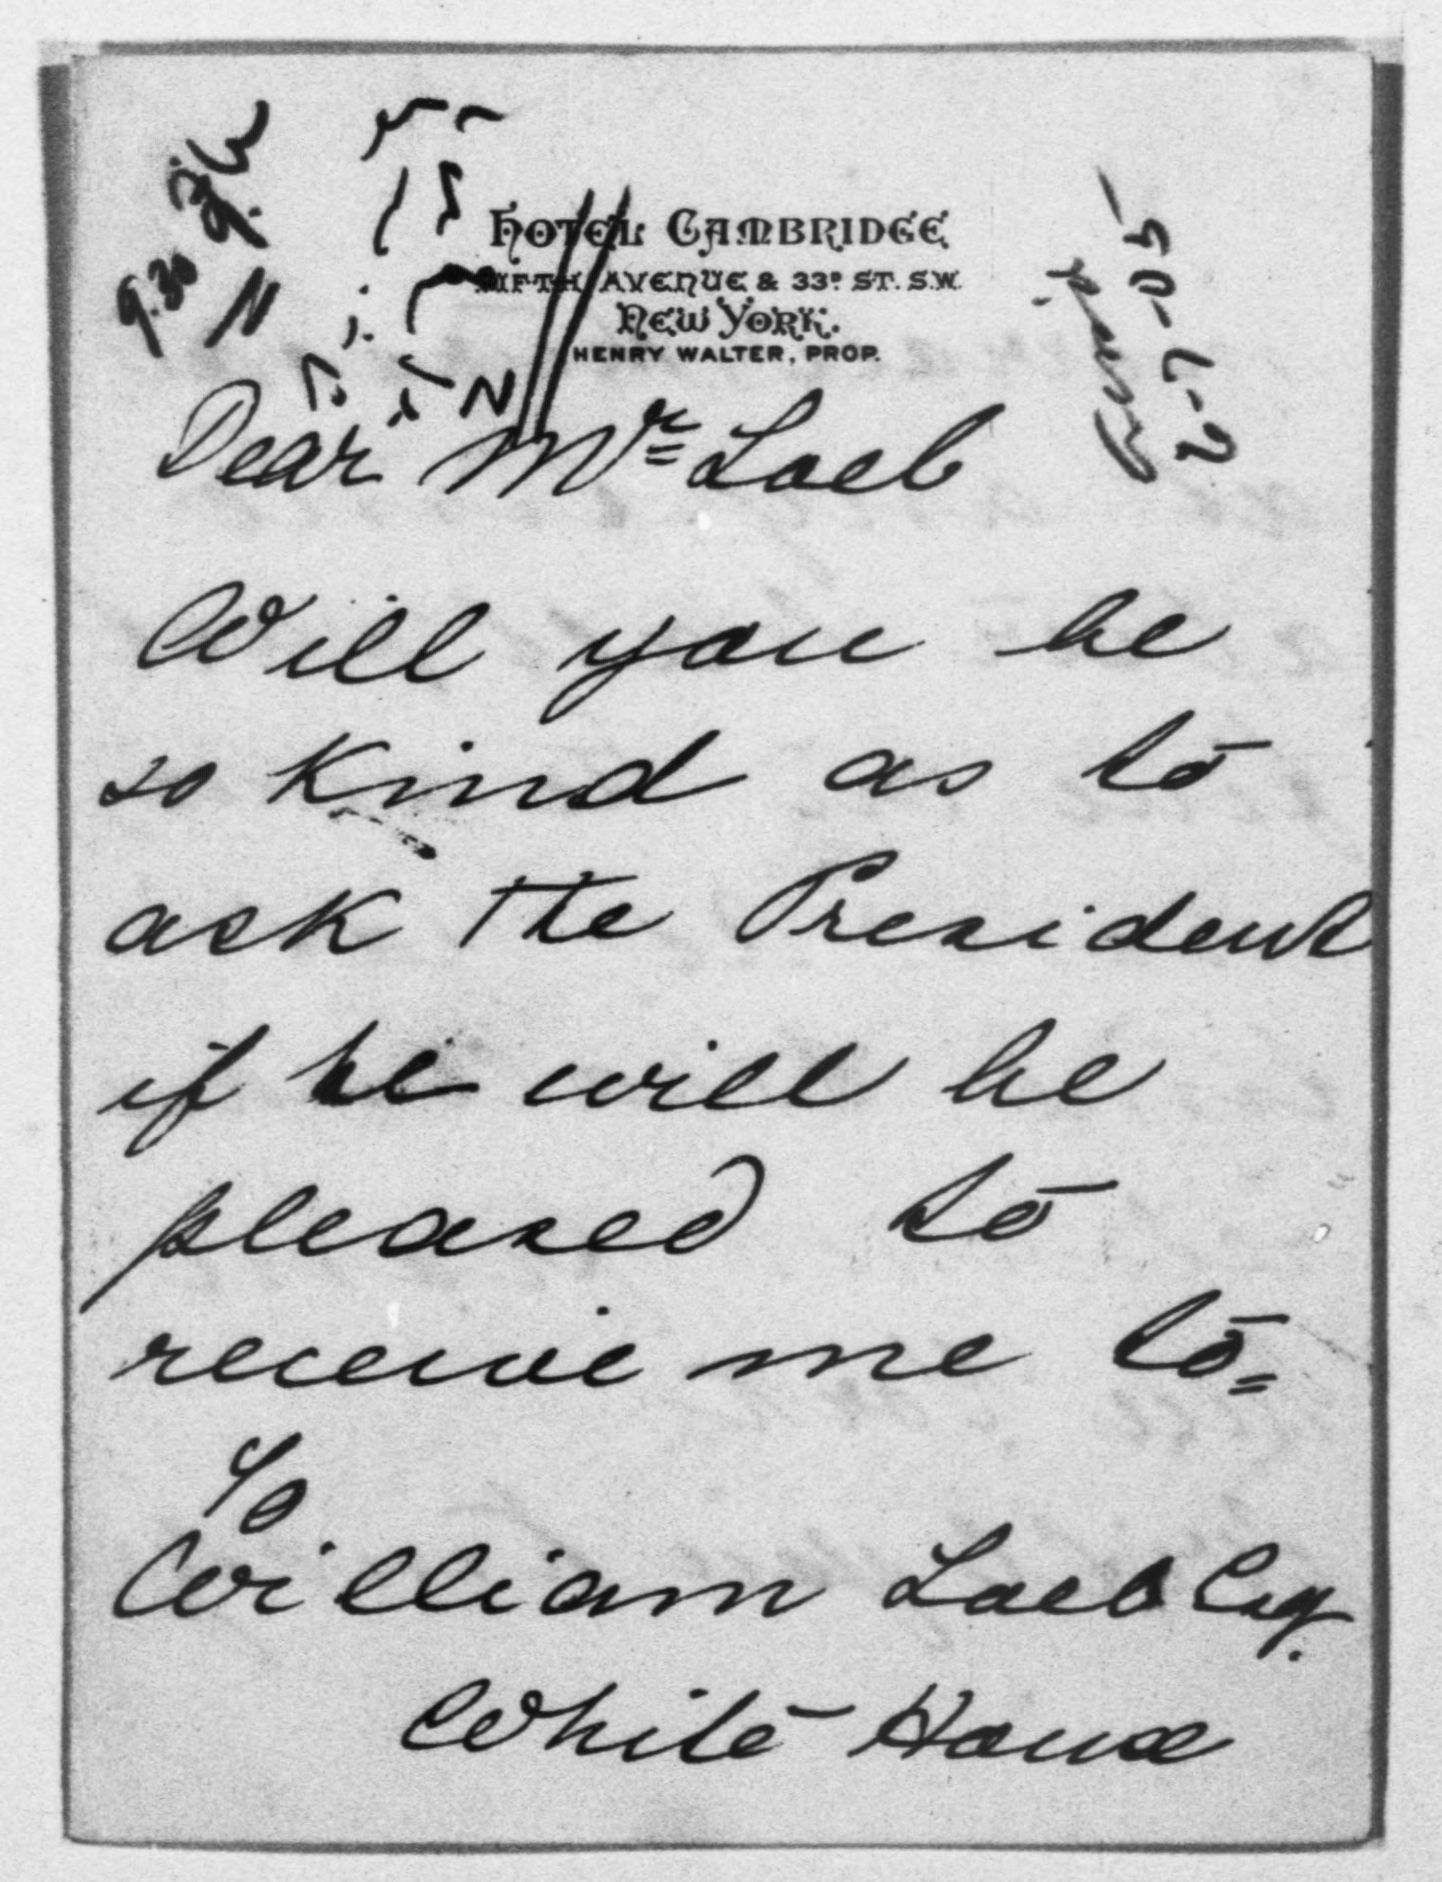 HOTEL CAMBRIDGE
FIFTH AVENUE & 33D ST. S.W.
NEW YORK.
HENRY WALTER, PROP.
9.30
2-7-05
Dear Mr Loeb
Will you be
so kind as to
ask the President
if he will be
pleased to
receive me to=
To
William Loeb Esq.
White House